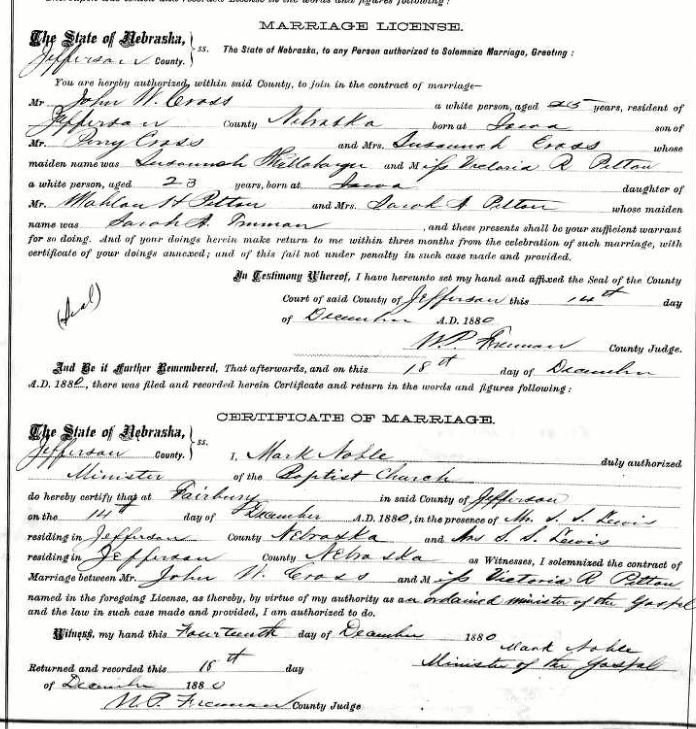 MARRIAGE LICENSE.
The State of Nebraska,
Jefferson County. } ss. The State of Nebraska, to any Person authorized to Solemnize Marriage, Greeting:
You are hereby authorized, within said County, to join in the contract of marriage—
Mr John W. Cross a white person, aged 25 years, resident of
Jefferson County Nebraska born at Iowa son of
Mr. Perry Cross and Mrs. Susannah Cross whose
maiden name was Susannah and Miss Victoria R Pitton
a white person, aged 23 years, born at Iowa daughter of
Mr. Mahlon H Pitton and Mrs. Sarah A Pitton whose maiden
name was Sarah A. Truman, and these presents shall be your sufficient warrant
for so doing. And of your doings herein make return to me within three months from the celebration of such marriage, with
certificate of your doings annexed; and of this fail not under penalty in such case made and provided.
In Testimony Whereof, I have hereunto set my hand and affixed the Seal of the County
(Seal) Court of said County of Jefferson this 14th day
of December A.D. 1880
W.P. Freeman County Judge.
And Be it Further Remembered, That afterwards, and on this 18th day of December
A.D. 1880, there was filed and recorded herein Certificate and return in the words and figures following:
CERTIFICATE OF MARRIAGE.
The State of Nebraska,
Jefferson County. } ss. I, Mark Noble duly authorized
Minister of the Baptist Church
do hereby certify that at Fairbury in said County of Jefferson
on the 14 day of December A.D. 1880, in the presence of Mr. S. S. Lewis
residing in Jefferson County Nebraska and Mrs S. S. Lewis
residing in Jefferson County Nebraska as Witnesses, I solemnized the contract of
Marriage between Mr. John W. Cross and Miss Victoria R Pitton
named in the foregoing License, as thereby, by virtue of my authority as an ordained minister of the Gospel
and the law in such case made and provided, I am authorized to do.
Witness, my hand this Fourteenth day of December 1880
Mark Noble
Returned and recorded this 18th day Minister of the Gospel
of December 1880
W.P. Freeman County Judge